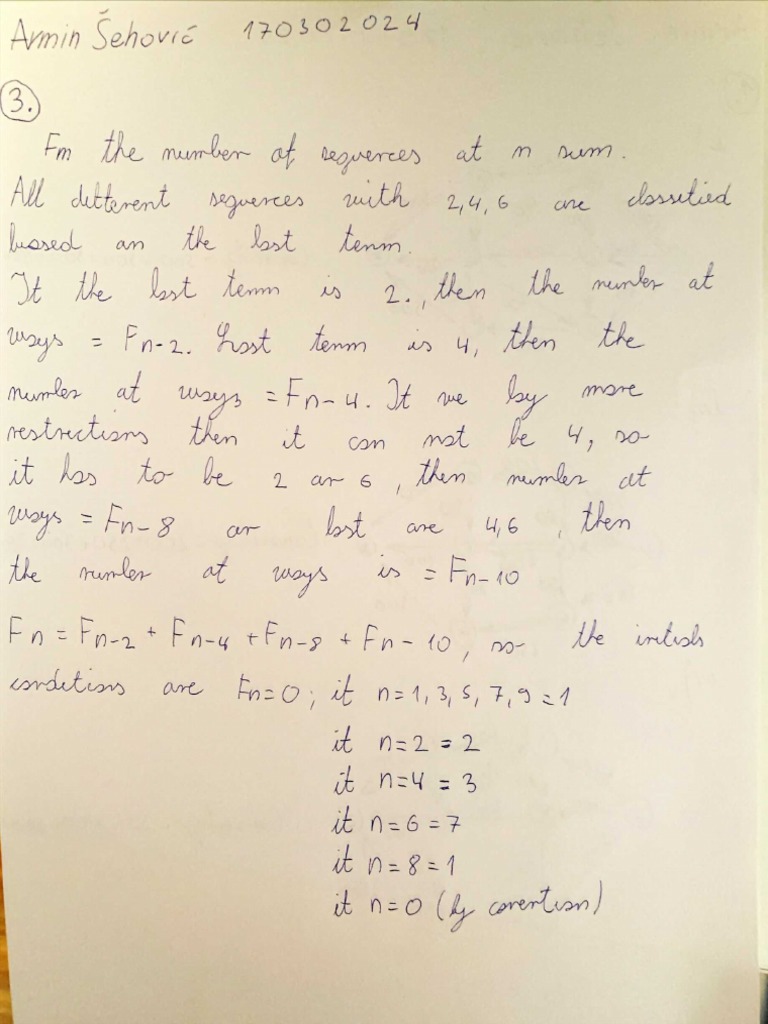 Armin Šehović 170302024
3.
Fn the number of sequences at n sum.
All different sequences with 2,4,6 are classified
based on the last term.
If the last term is 2., then the number of
ways = Fn-2. Last term is 4, then the
number of ways = Fn-4. If we by more
restrictions then it can not be 4, so
it has to be 2 or 6, then number of
ways = Fn-8 or last are 4,6, then
the number of ways is = Fn-10
Fn = Fn-2 + Fn-4 + Fn-8 + Fn-10, so the initials
conditions are Fn=0; if n=1,3,5,7,9 =1
if n=2 = 2
if n=4 = 3
if n=6 = 7
if n=8 = 1
if n=0 (by convention)